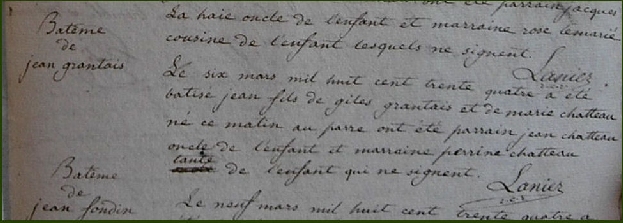 ont été parrain jacques
La haie oncle de l'enfant et marraine rose lemarié
cousine de l'enfant lesquels ne signent.
Lanier
Batême
de
jean grantais
Le six mars mil huit cent trente quatre a été
batisé jean fils de giles grantais et de marie chatteau
né ce matin au parre ont été parrain jean chatteau
oncle de l'enfant et marraine perrine chatteau
tante de l'enfant qui ne signent.
Lanier
Batême
de
jean fondin
Le neuf mars mil huit cent trente quatre a